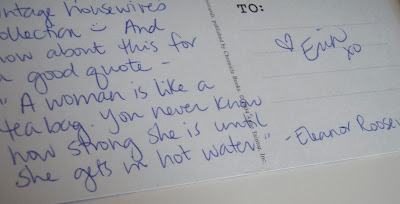 intage housewives
ollection ☺ And
how about this for
a good quote -
" A woman is like a
tea bag. you never know
how strong she is until
she gets in hot water."
-Eleanor Roosev
TO:
♡ Erin
xo
published by Chronicle Books.
Inc.